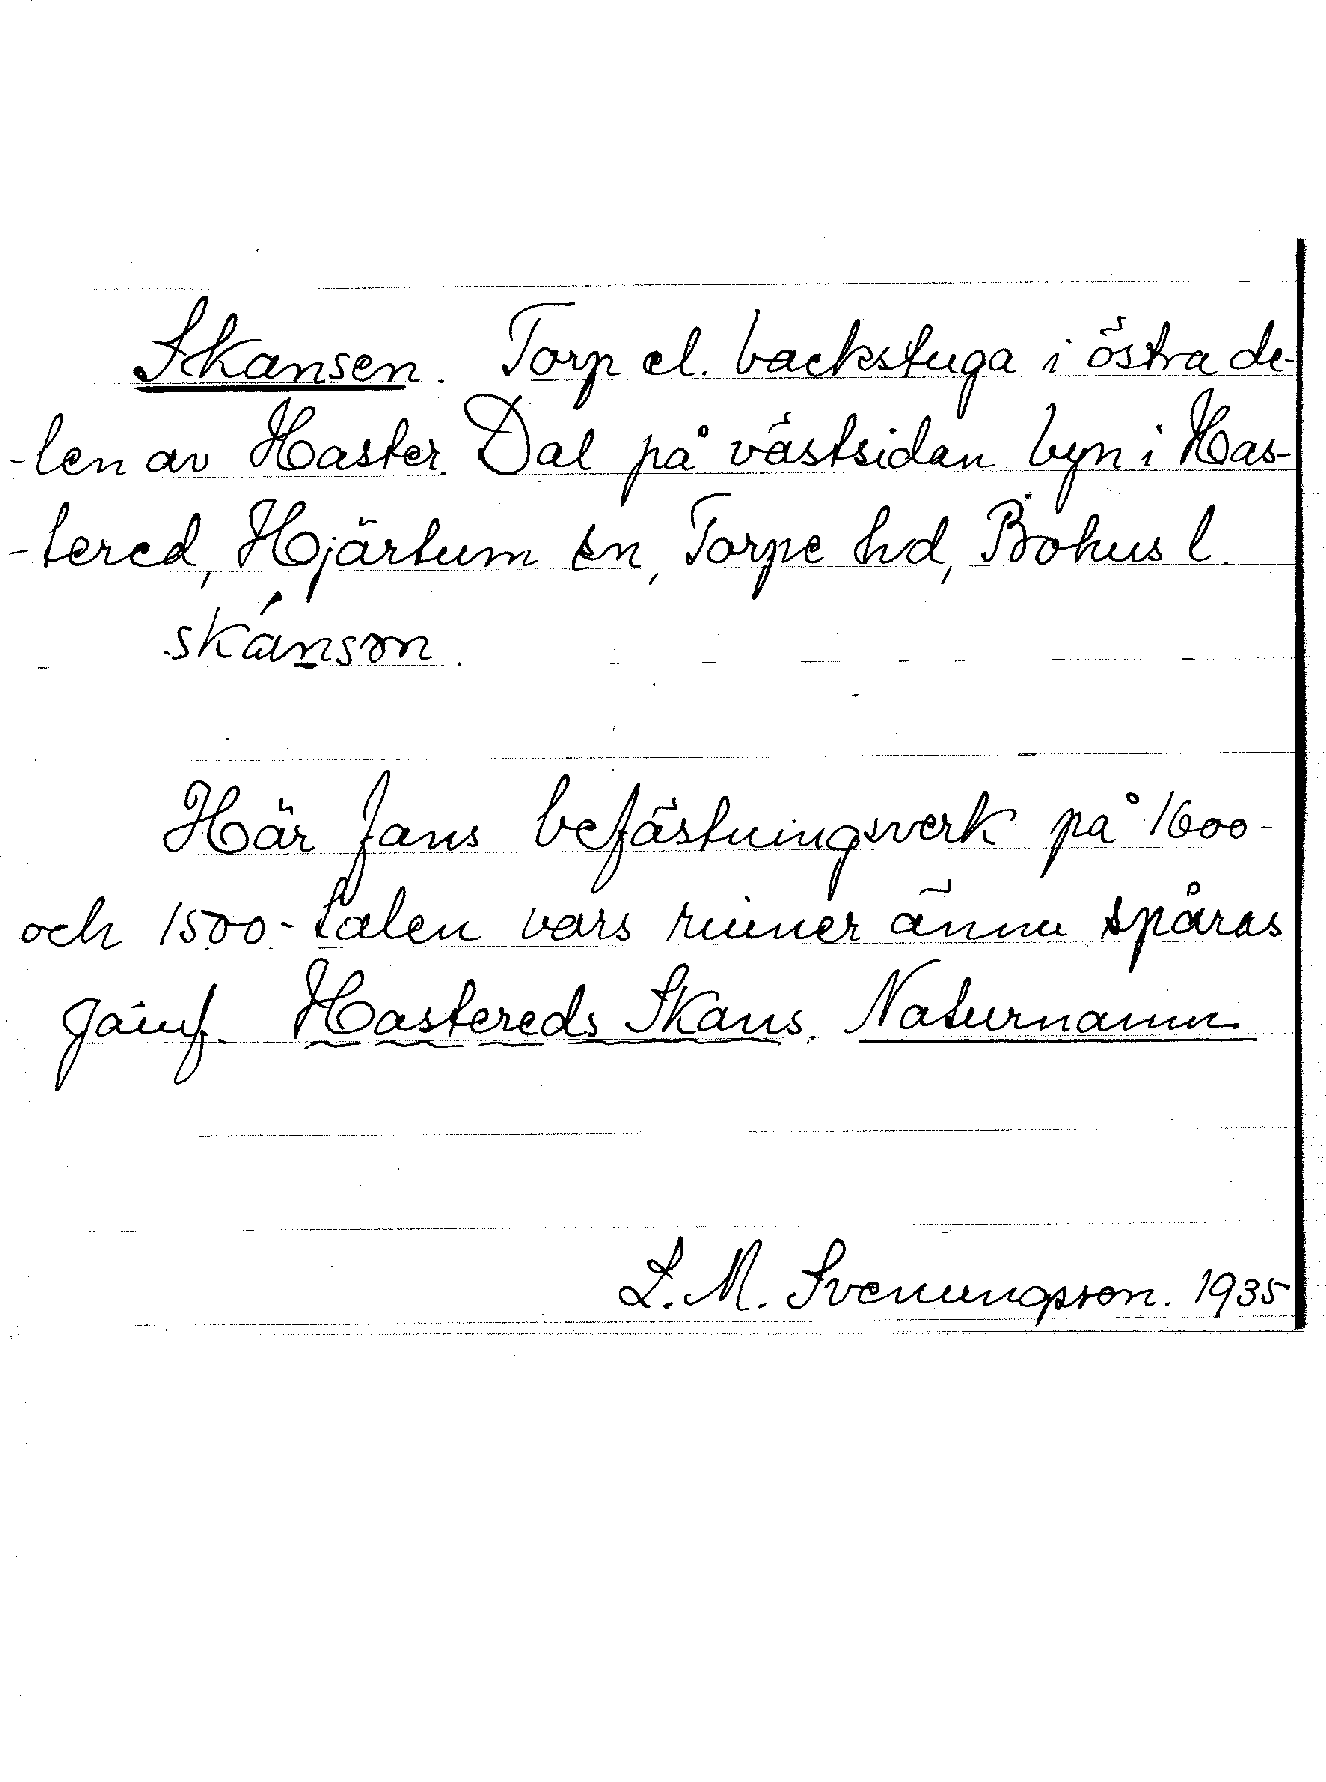 Skansen. Torp el. backstuga i östra de-
-len av Haster Dal på västsidan byn i Has-
-tered, Hjärtum sn, Torpe hd, Bohus l.
skánson.
Här fans befästningsverk på 1600-
och 1500-talen vars ruiner ännu spåras
Jämf. Hastereds Skans. Naturnamn
L. M. Svenungsson. 1935